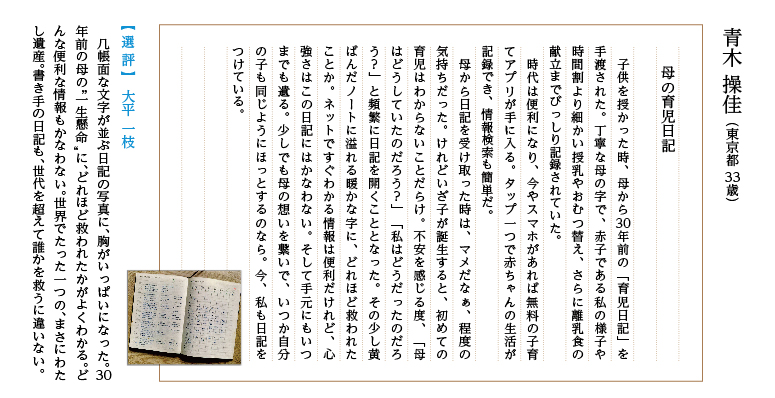 青木 操佳（東京都 33歳）
母の育児日記
子供を授かった時、母から30年前の「育児日記」を
手渡された。丁寧な母の字で、赤子である私の様子や
時間割より細かい授乳やおむつ替え、さらに離乳食の
献立までびっしり記録されていた。
時代は便利になり、今やスマホがあれば無料の子育
てアプリが手に入る。タップ一つで赤ちゃんの生活が
記録でき、情報検索も簡単だ。
母から日記を受け取った時は、マメだなぁ、程度の
気持ちだった。けれどいざ子が誕生すると、初めての
育児はわからないことだらけ。不安を感じる度、「母
はどうしていたのだろう？」「私はどうだったのだろ
う？」と頻繁に日記を開くこととなった。その少し黄
ばんだノートに溢れる暖かな字に、どれほど救われた
ことか。ネットですぐわかる情報は便利だけれど、心
強さはこの日記にはかなわない。そして手元にもいつ
までも遺る。少しでも母の想いを繋いで、いつか自分
の子も同じようにほっとするのなら。今、私も日記を
つけている。
【選評】 大平 一枝
几帳面な文字が並ぶ日記の写真に、胸がいっぱいになった。30
年前の母の〝一生懸命〟に、どれほど救われたかがよくわかる。ど
んな便利な情報もかなわない。世界でたった一つの、まさにわた
し遺産。書き手の日記も、世代を超えて誰かを救うに違いない。